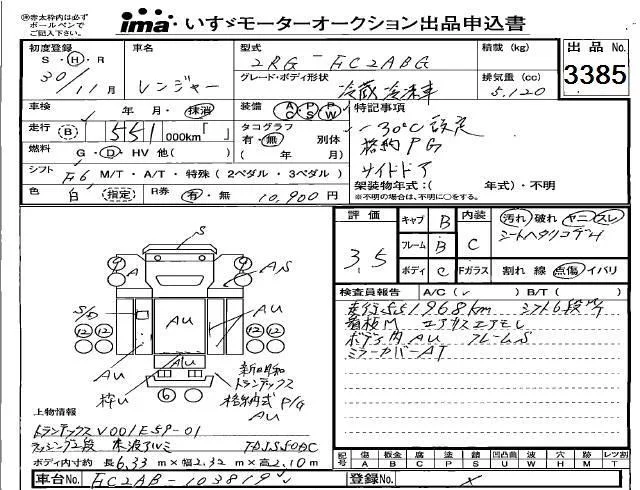 ㊟赤太枠内は必ず
ボールペンで
ご記入下さい。
ima いすゞモーターオークション出品申込書
初度登録 車名 型式 積載(kg) 出品No.
S・H・R
30/11月 レンジャー 2RG-FC2ABG 3385
グレード・ボディ形状 排気量(cc)
冷蔵冷凍車 5,120
車検 年 月・抹消 装備 AC PS PW 特記事項
走行 B 551 000km「 」 タコグラフ -30℃設定
有・無 別体 格納PG
燃料 G・D・HV 他( ) ( 年 月) サイドドア
シフト F6 M/T・A/T・特殊(2ペダル・3ペダル)
架装物年式:( 年式)・不明
色 白 (指定) R券 有・無 10,900円 ※不明の場合は、不明に○をする。
評価 キャブ B 内装 汚れ 破れ ヤニ スレ
3.5 フレーム B C シートヘタリコゲH
ボディ C Fガラス 割れ 線 点傷 イバリ
検査員報告 A/C( ) B/T( )
走行551968km シフト6段M/T
看板M エアサスエアモレ
ボディ内AU フレームS
ミラーカバーAT
S
A AS
S/D AU
12 12 AU AU 12 12
AU AU
枠U 6
新明和
トランテックス
格納式P/G
AU
上物情報
トランテックス V001E59-01
ラッシング2段 木波アルミ TDJS50DC
ボディ内寸約 長6.33m×幅2.32m×高2.10m
記号 傷A 板金B 腐C 塗P 錆S 凹凸U 曲W 穴H 跡M レツ割T
車台No. FC2AB-103819 登録No. ×